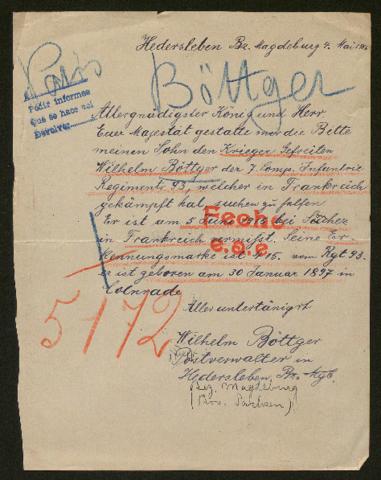 Hedersleben Bz. Magdeburg 4. Mai
Paris
Pedir informes
Que se hace así
Devolver
Böttger
Allergnädigster König und Herr
Euer Majestät gestatte mir die Bitte
meinen Sohn den Krieger Gefreiten
Wilhelm Böttger der 7. Comp. Infantrie
Regiments 93, welcher in Frankreich
gekämpft hat suchen zu helfen
Er ist am 5 Juni bei Souchez
in Frankreich vermißt. Seine Er-
kennungsmarke ist 415. vom Rgt 93.
er ist geboren am 30 Januar 1897 in
Colnrade
Fecho
e.g.e
5/172
Aller untertänigst
Wilhelm Böttger
Postverwalter in
Hedersleben, Bz. Mgb.
Bez. Magdeburg
(Prov. Sachsen)